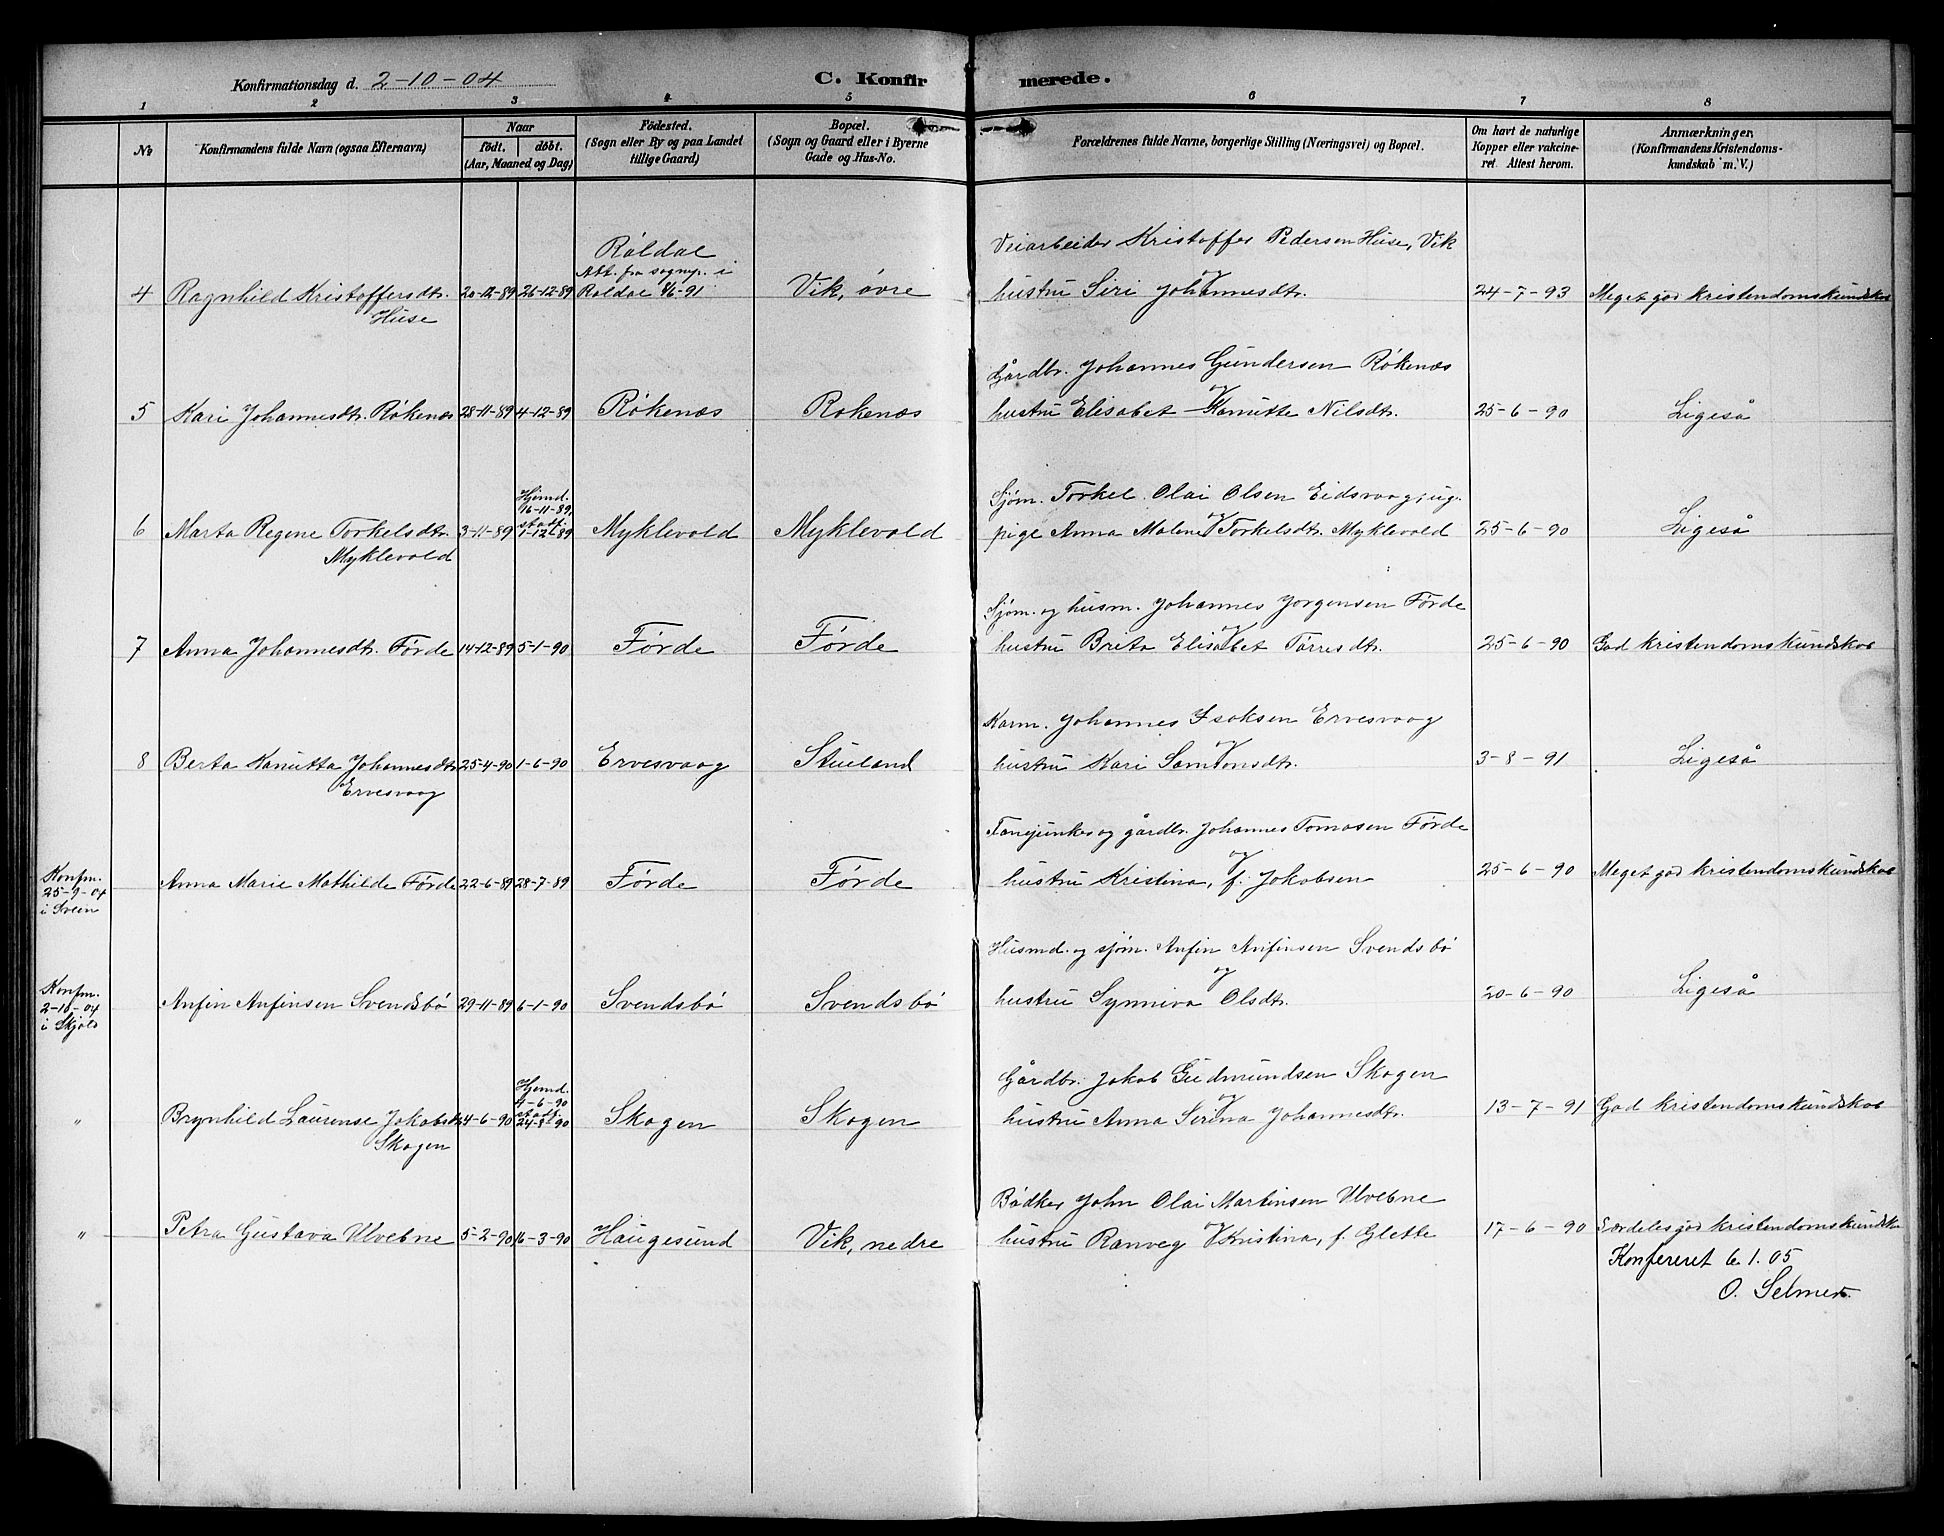 Konfirmationsdag d. 2-10-04
C. Konfirmerede.
1 2 3 4 5 6 7 8
No
Konfirmandens fulde Navn (ogsaa Efternavn)
Naar
født. døbt.
(Aar, Maaned og Dag)
Fødested.
(Sogn eller By og paa Landet
tillige Gaard)
Bopæl.
(Sogn og Gaard eller i Byerne
Gade og Hus-No.
Forældrenes fulde Navne, borgerlige Stilling (Næringsvei) og Bopæl.
Om havt de naturlige
Kopper eller vakcine-
ret. Attest herom.
Anmærkninger,
(Konfirmandens Kristendoms-
kundskab m. V.)
Veiarbeider Kristoffer Pedersen Huse, Vik
Røldal
Att. fra sognep. i
4 Ragnhild Kristoffersdtr. 20-12-89 26-12-89 Røldal 4/6-91 Vik, øvre
Huse
og
hustru Siri Johannesdtr. 24-7-93 Meget god kristendomskundskab
Gårdbr. Johannes Gundersen Røkenæs
5 Kari Johannesdtr. Røkenæs 28-11-89 4-12-89 Røkenæs Røkenæs
og
hustru Elisabet Kanutte Nilsdtr. 25-6-90 Ligeså
Hjemd.
16-11-89,
stadf.
Sjøm. Torkel Olai Olsen Eidsvaag, ug.
6 Marta Regine Torkelsdtr. 3-11-89 1-12-89 Myklevold Myklevold
Myklevold
og
pige Anna Malene Torkelsdtr. Myklevold 25-6-90 Ligeså
Sjøm. og husm. Johannes Jørgensen Førde
7 Anna Johannesdtr. Førde 14-12-89 5-1-90 Førde Førde
og
hustru Brita Elisabet Tørresdtr. 25-6-90 God kristendomskundskab
Kårm. Johannes Isaksen Ervesvaag
8 Berta Kanutta Johannesdtr. 25-4-90 1-6-90 Ervesvaag Stueland
Ervesvaag
og
hustru Kari Samsonsdtr. 3-8-91 Ligeså
Fanejunker og gårdbr. Johannes Tomasen Førde
Konfm.
25-9-04
i Svein
Anna Marie Mathilde Førde 22-6-89 28-7-89 Førde Førde
og
hustru Kristina, f. Jakobsen 25-6-90 Meget god kristendomskundskab
Husmd. og sjøm. Anfin Anfinsen Svendsbø
Konfm.
2-10-04
i Skjold
Anfin Anfinsen Svendsbø 29-11-89 6-1-90 Svendsbø Svendsbø
og
hustru Synniva Olsdtr. 20-6-90 Ligeså
Gårdbr. Jakob Gudmundsen Skogen
Hjemd.
4-6-90
stadf.
" Brynhild Laurense Jakobsdtr. 4-6-90 24-8-90 Skogen Skogen
Skogen
og
hustru Anna Serina Johannesdtr. 13-7-91 God kristendomskundskab
Bødker John Olai Martinsen Ulvebne
" Petra Gustava Ulvebne 5-2-90 16-3-90 Haugesund Vik, nedre
og
hustru Ranveg Kristina, f. Glette 17-6-90 Særdeles god kristendomskundsk.
Konfereret 6.1.05
O. Selmer.